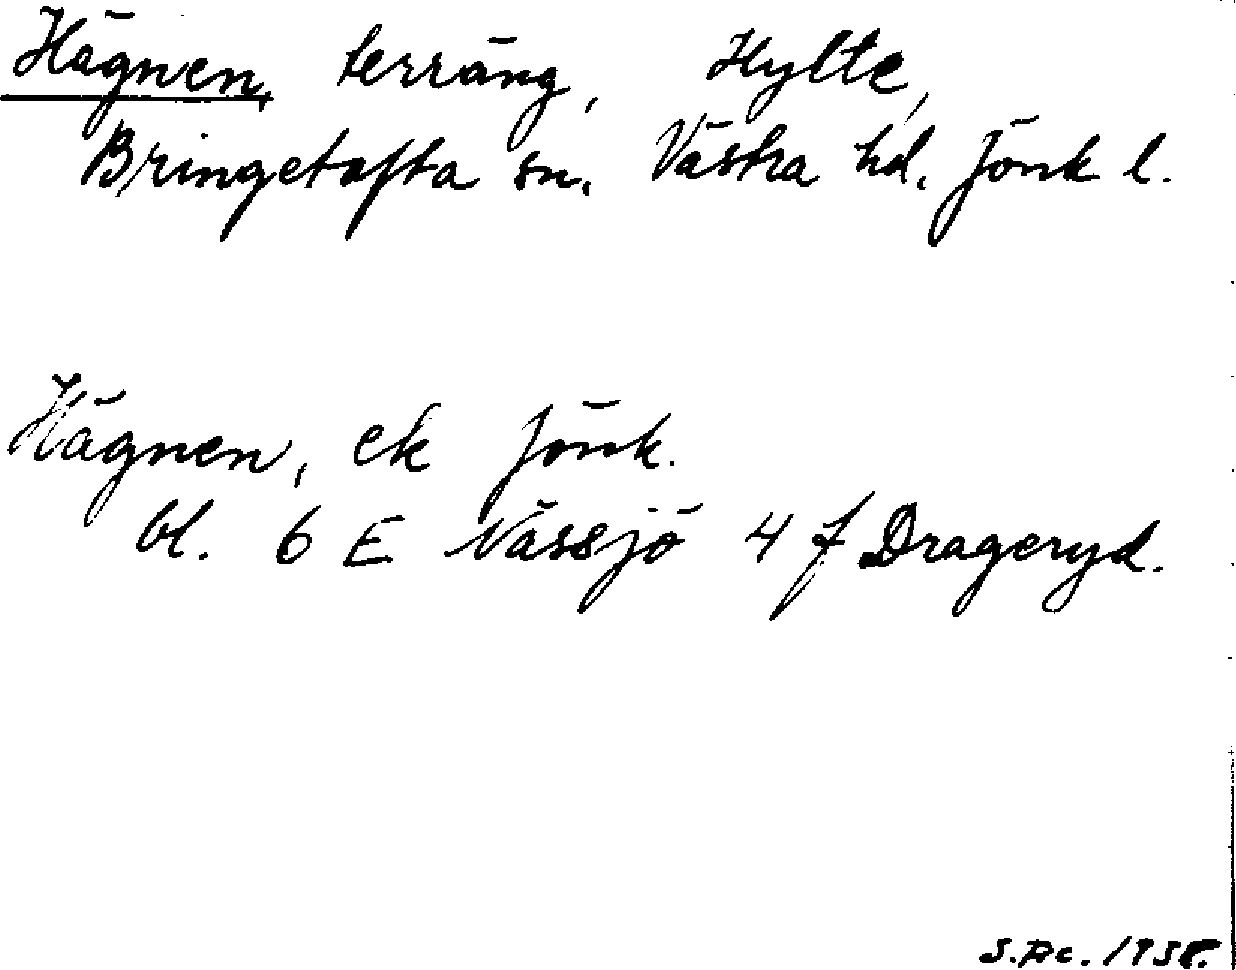 Hägnen, terräng, Hylte,
Bringetofta sn. Västra hd. Jönk l.
Hägnen, ek Jönk.
bl. 6 E Nässjö 4 f Drageryd.